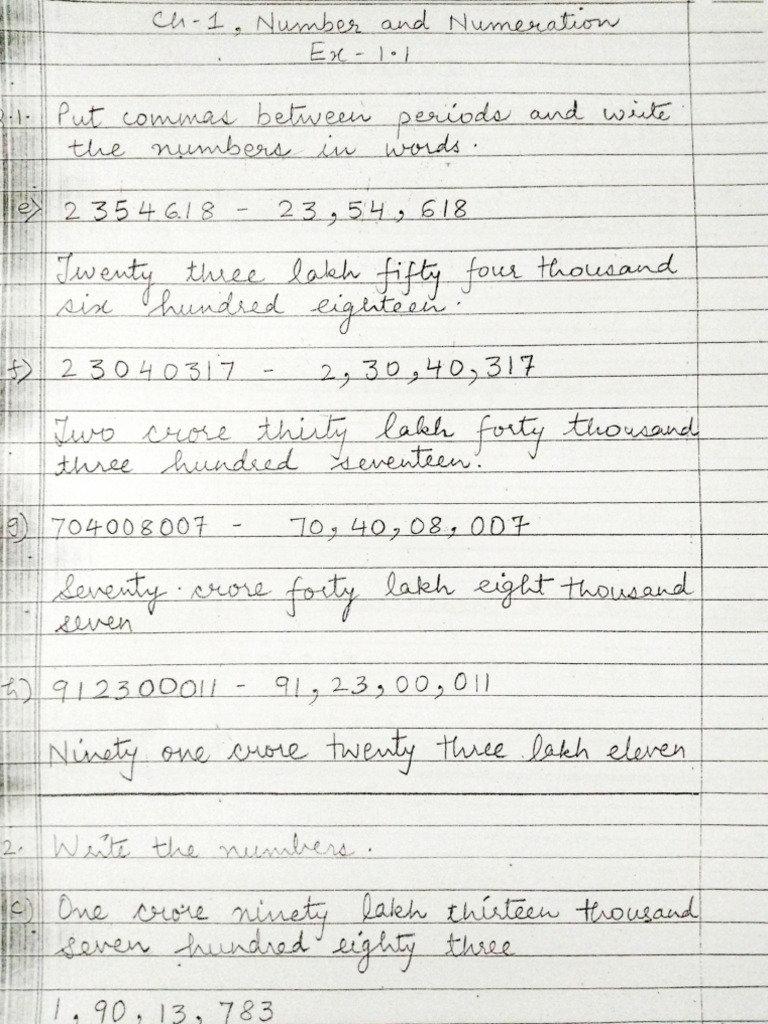 Ch-1, Number and Numeration
Ex - 1.1
1. Put commas between periods and write
the numbers in words.
e) 2354618 - 23,54,618
Twenty three lakh fifty four thousand
six hundred eighteen.
f) 23040317 - 2,30,40,317
Two crore thirty lakh forty thousand
three hundred seventeen.
g) 704008007 - 70,40,08,007
Seventy crore forty lakh eight thousand
seven
h) 912300011 - 91,23,00,011
Ninety one crore twenty three lakh eleven
2. Write the numbers.
c) One crore ninety lakh thirteen thousand
seven hundred eighty three
1,90,13,783